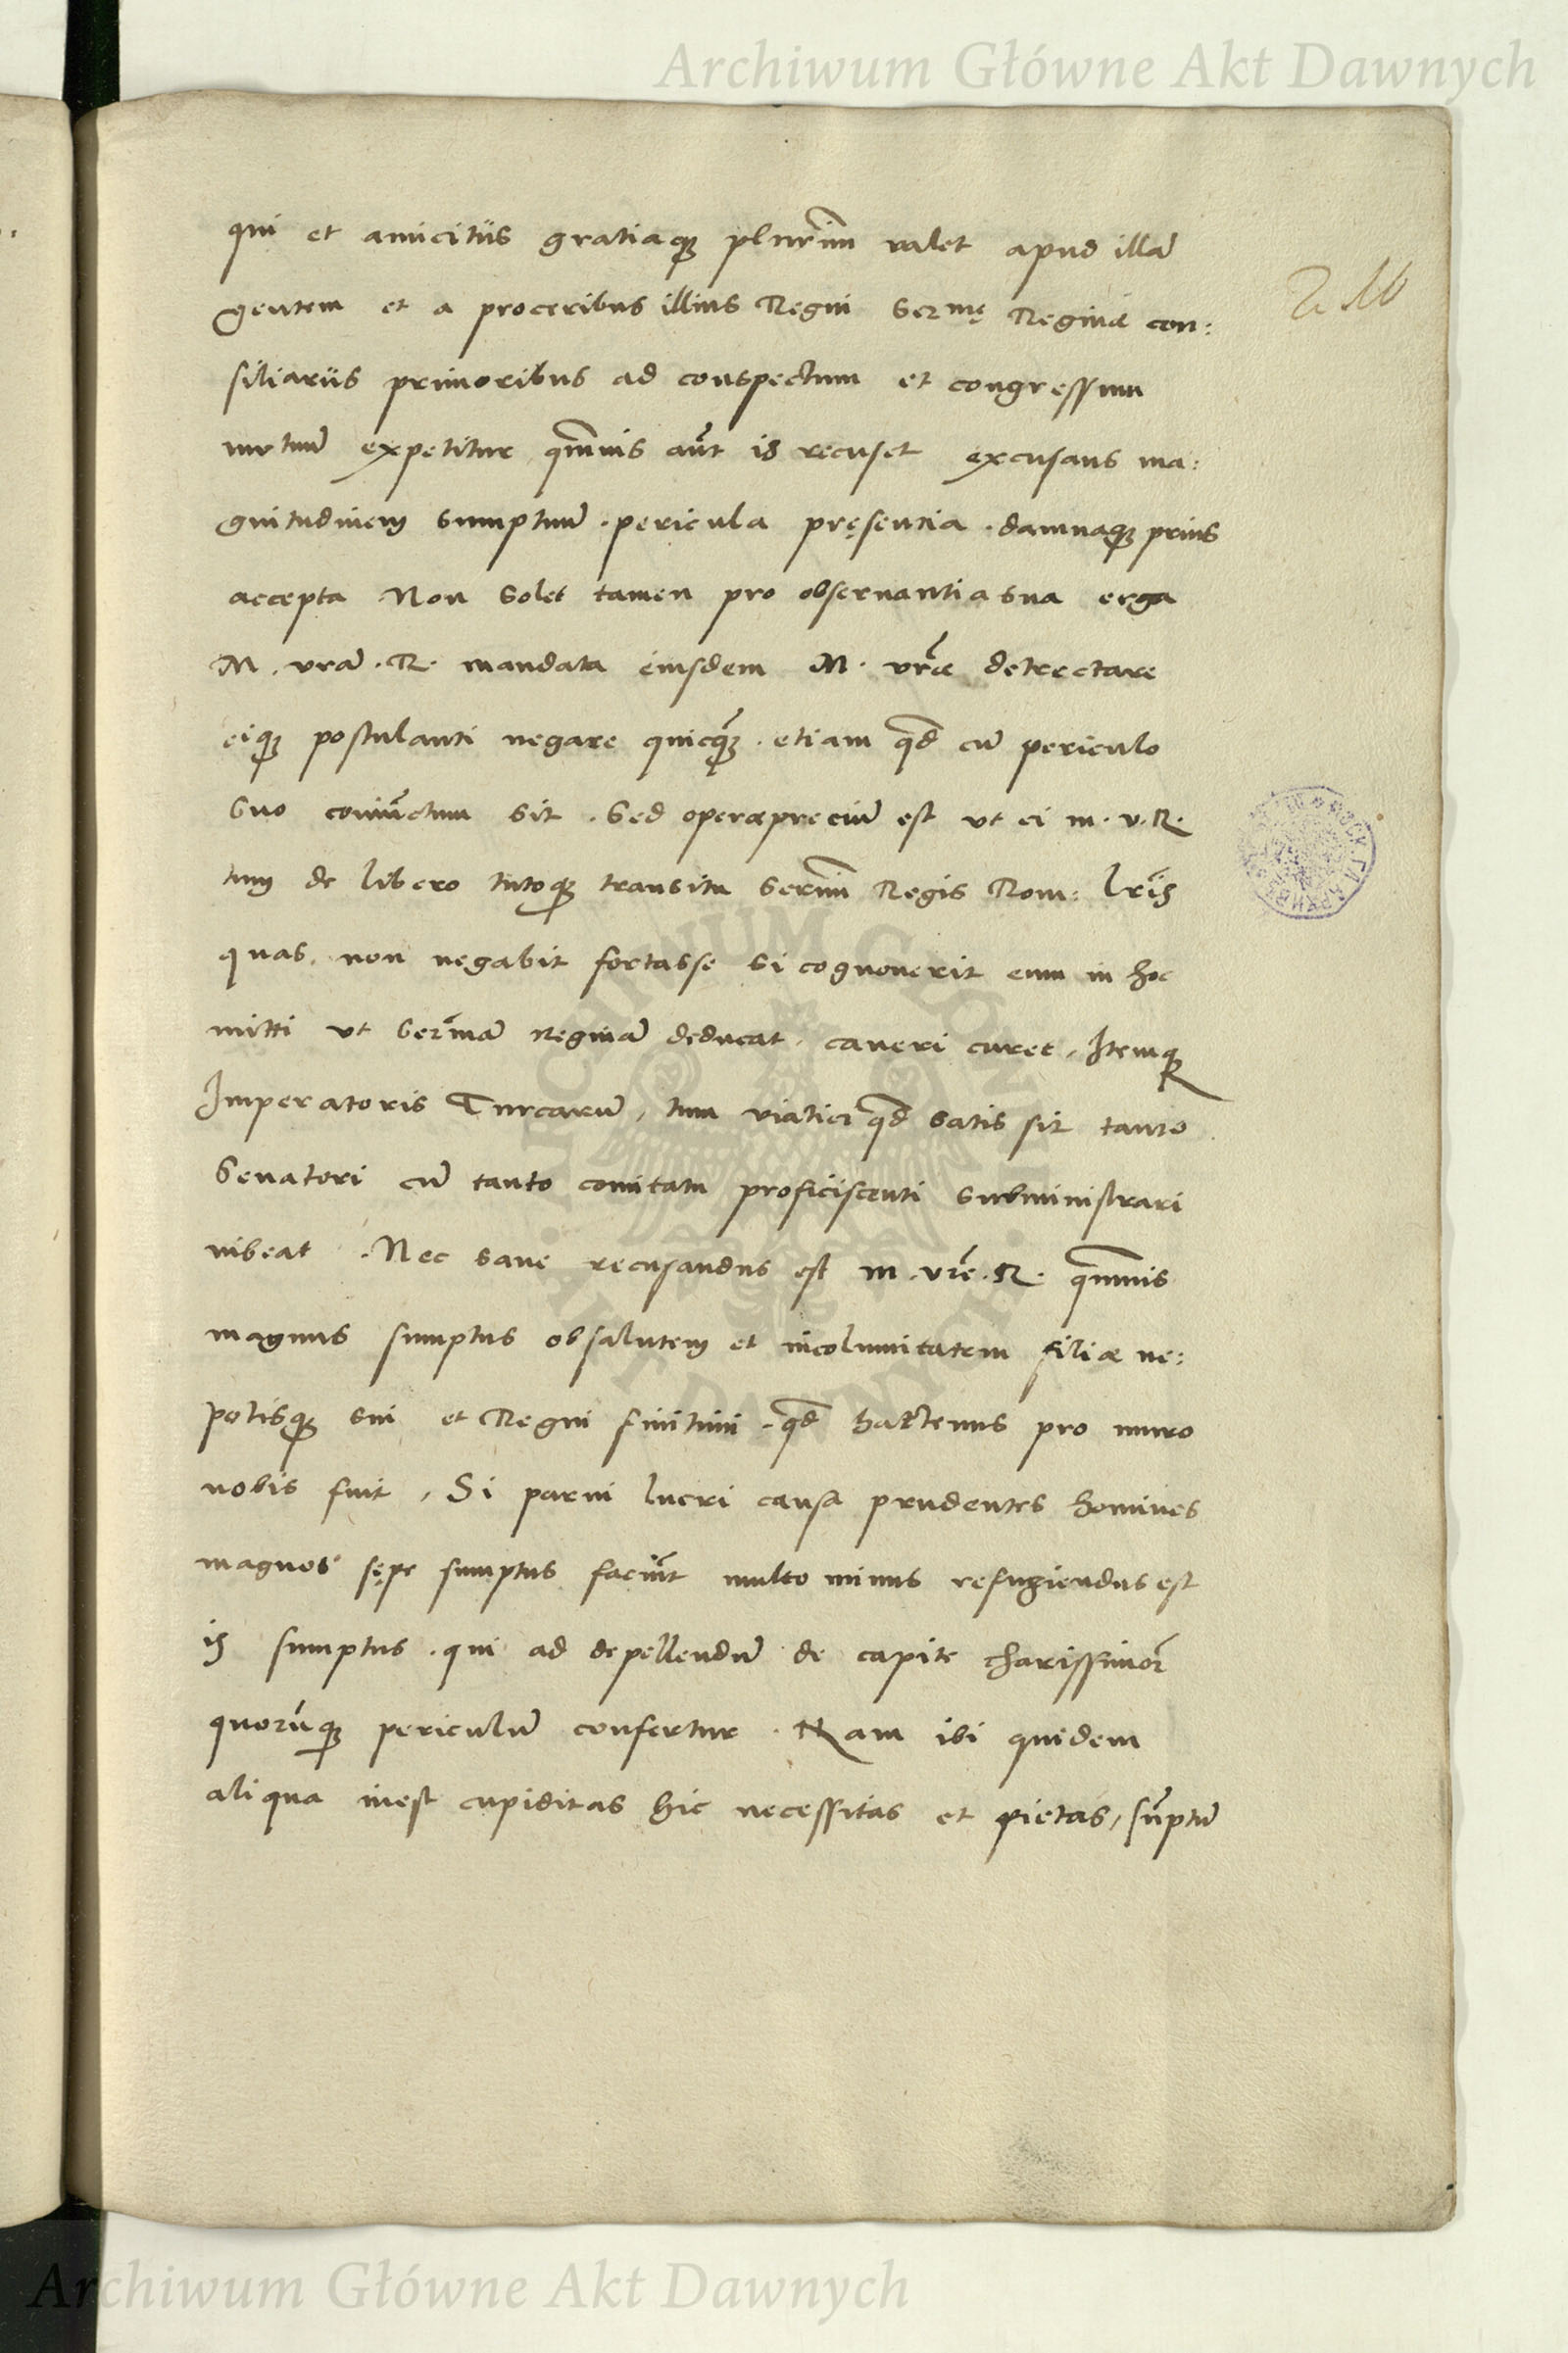 Archiwum Główne Akt Dawnych
qui et amicitiis gratiaq₃ plurim̄ valet apud illā
gentem et a proceribus illius Regni Sermę Reginæ con:
siliariis primoribus ad conspectum et congressum
mutuū expetitur q̄muis aūt is recuset excusans ma:
gnitudinem sumptuū . pericula pręsentia . damnaq₃ prius
accepta Non solet tamen pro obseruantia sua erga
M . vrā . R . mandata eiusdem M . vr̄æ detrectare
eiq₃ postulanti negare quicq̄₃ . etiam qd̄ cū periculo
suo coniūctum sit . Sed operæpreciū est vt ei m . v . R .
tum de libero tutoq₃ transitu Serm̄i Regis Rom: lr̄is
quas non negabit fortasse si cognouerit eum in hoc
mitti vt Ser̄mā reginā deducat , caueri curet , Itemq₃
Imperatoris Turcarū , tum viatici qd̄ satis sit tanto
Senatori cū tanto comitatu proficiscenti subministrari
iubeat . Nec sane recusandus est m . vr̄e . R . q̄muis
magnus sumptus ob salutem et incolumitatem filiæ ne:
potisq₃ sui et Regni finitimi . qd̄ hactenus pro muro
nobis fuit , Si parui lucri causa prudentes homines
magnos sępe sumptus faciūt multo minus refugiendus est
is sumptus . qui ad depellendū de capite charissimor̄
quorūq₃ periculū confertur . Nam ibi quidem
aliqua inest cupiditas hic necessitas et pietas , sūptū
ARCHIWUM GŁÓWNE AKT DAWNYCH
Archiwum Główne Akt Dawnych